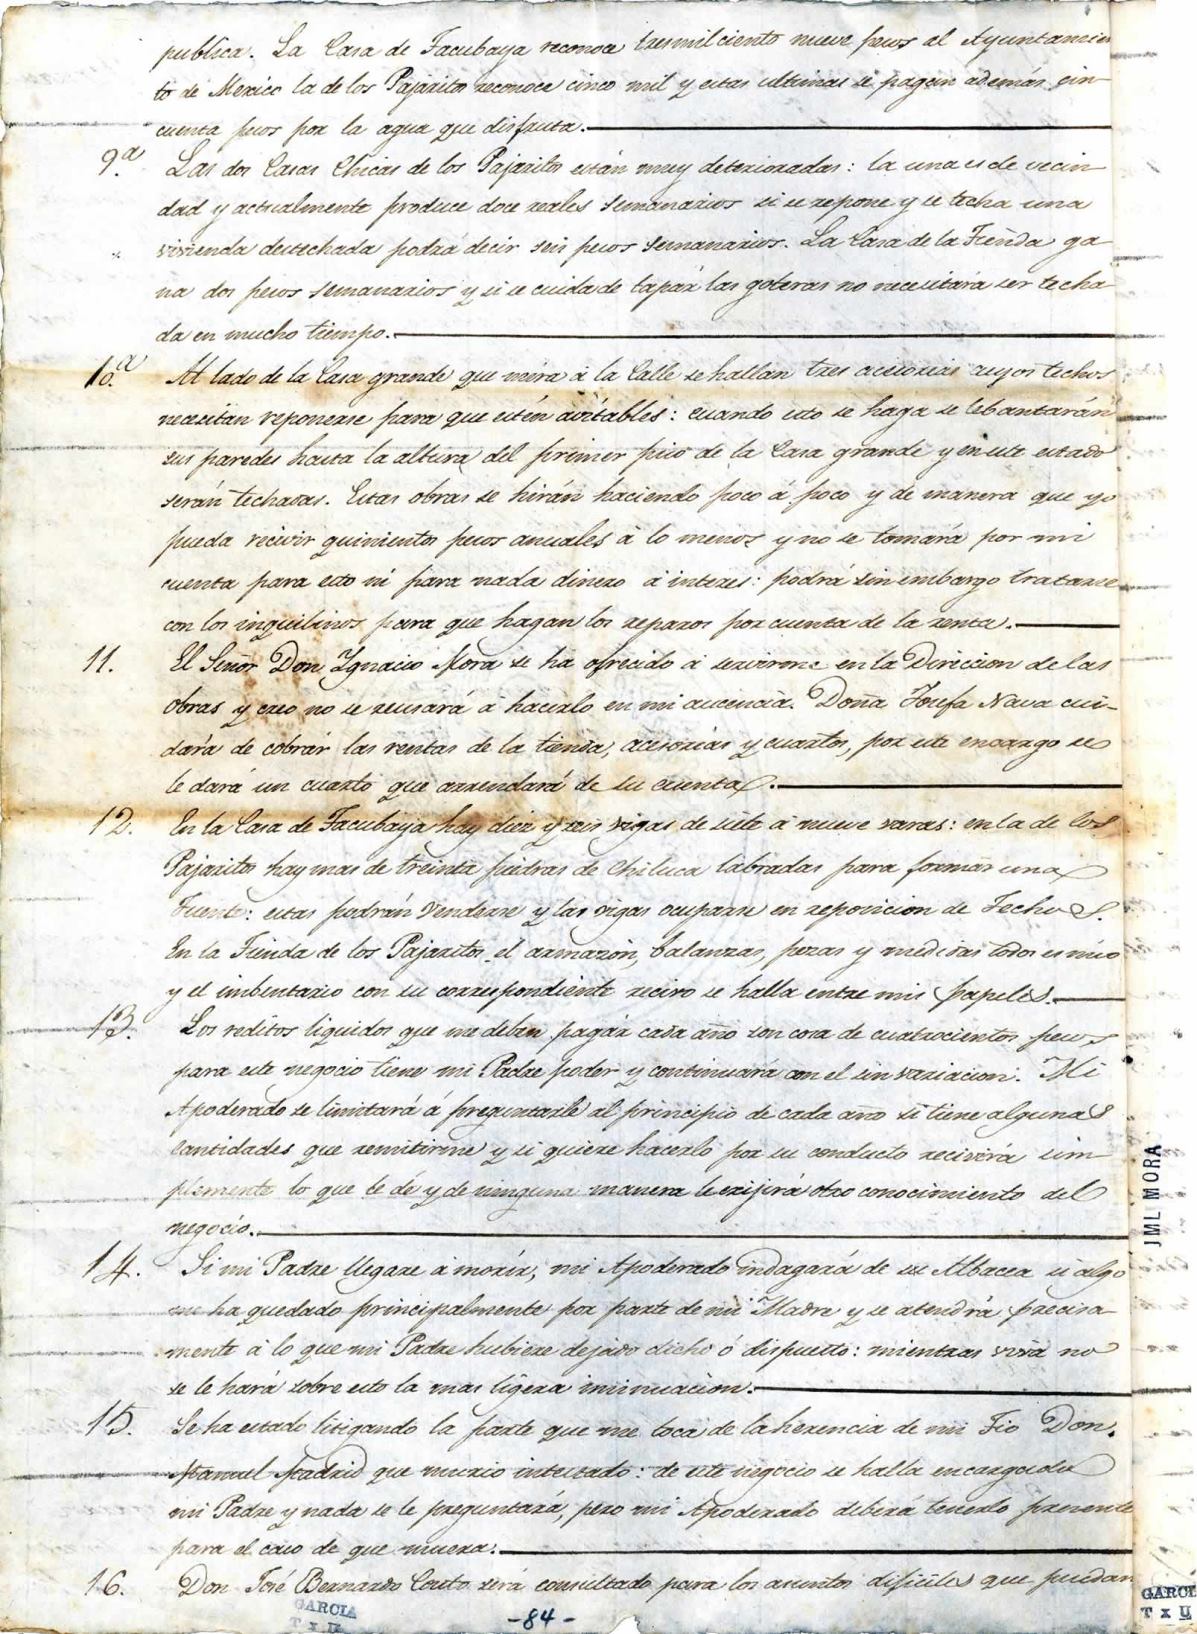 publica. La Casa de Tacubaya reconoce tresmil ciento nueve pesos al Ayuntamien
to de Mexico la de los Pajaritos reconoce cinco mil y estas ultimas se pagan además cin
cuenta pesos por la agua que disfruta.
9.a Las dos Casas Chicas de los Pajaritos están muy deterioradas: la una es de vecin
dad y actualmente produce doce reales semanarios si se repone y se techa una
vivienda destechada podrá decir seis pesos semanarios. La Casa de la Tienda ga
na dos pesos semanarios y si se cuida de tapár las goteras no necesitará ser techa
da en mucho tiempo.
10.a Al lado de la Casa grande que mira á la Calle se hallan tres acesorias cuyos techos
necesitan reponerse para que estén avitables: cuando esto se haga se lebantarán
sus paredes hasta la altura del primer piso de la Casa grande y en este estado
serán techadas. Estas obras se hirán haciendo poco á poco y de manera que yo
pueda recivir quinientos pesos anuales á lo menos y no se tomará por mi
cuenta para esto ni para nada dinero á interes: podrá sin embargo tratarse
con los inquilinos para que hagan los reparos por cuenta de la renta.
11. El Señor Don Ygnacio Mora se ha ofrecido á servirme en la Direccion de las
obras y creo no se reusará á hacerlo en mi aucencia. Doña Josefa Nava cui-
dará de cobrár las rentas de la tienda, acesorias y cuartos, por este encargo se
le dará un cuarto que arrendará de su cuenta.
12. En la Casa de Tacubaya hay diez y seis vigas de siete á nueve varas: en la de los
Pajaritos hay mas de treinta piedras de Chiluca labradas para formar una
Fuente: estas podrán venderse y las vigas ocuparse en reposicion de Techos.
En la Tienda de los Pajaritos el armazon, balanzas, pezas y medidas todo es mio
y el imbentario con su correspondiente recivo se halla entre mis papeles.
13. Los reditos liquidos que me deben pagár cada año son cosa de cuatrocientos pesos
para este negocio tiene mi Padre poder y continuará con el sin variacion. Mi
Apoderado se limitará á preguntarle al principio de cada año si tiene algunas
Cantidades que remitirme y si quiere hacerlo por su conducto recivirá sim
plemente lo que le dé y de ninguna manera le exijirá otro conocimiento del
negocio.
14. Si mi Padre llegare á morír, mi Apoderado indagará de su Albacea si algo
me ha quedado principalmente por parte de mi Madre y se atendrá precisa
mente á lo que mi Padre hubiere dejado dicho ó dispuesto: mientras viva no
se le hará sobre esto la mas ligera incinuacion.
15. Se ha estado litigando la parte que me toca de la herencia de mi Tio Don
Manuel Madrid que murio intestado: de este negocio se halla encargado
mi Padre y nada se le preguntará, pero mi Apoderado deberá tenerlo presente
para el caso de que muera.
16. Don José Bernardo Couto será consultado para los asuntos dificiles que puedan
GARCIA
T x II
-84-
JML MORA
GARCI
T x II